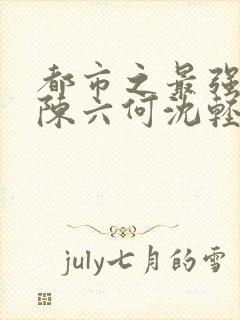 都市之最强
陈六何沈轻
july七月的雪